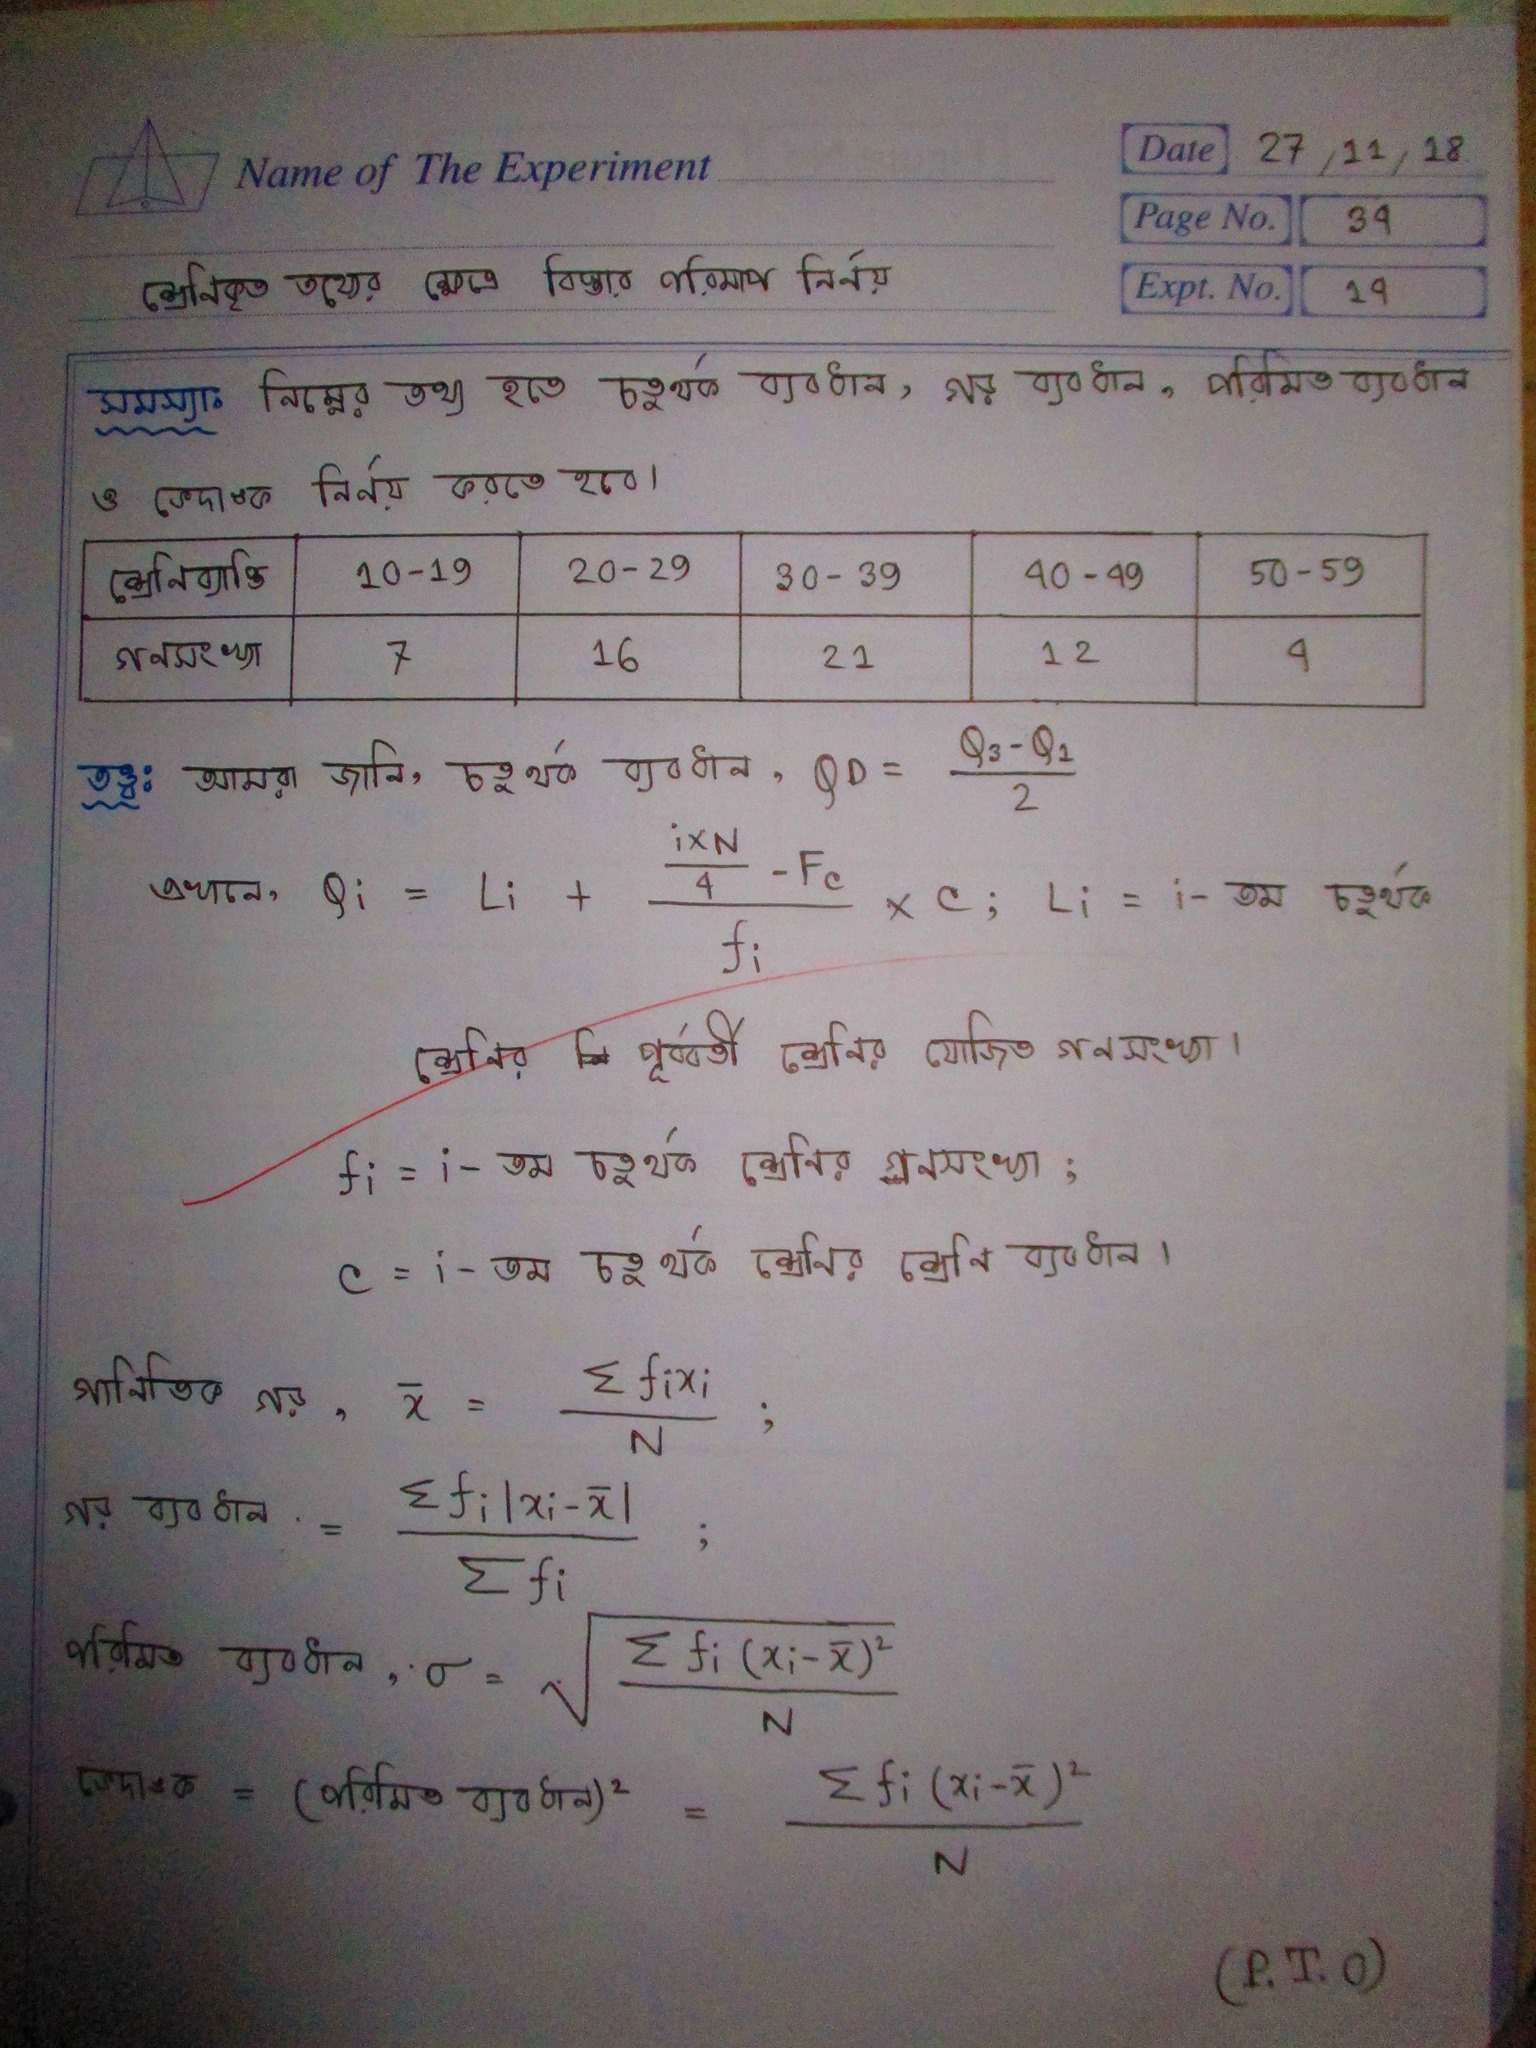 Name of The Experiment
Date 27/11/18
Page No. 34
শ্রেনিকৃত তথ্যের ক্ষেত্রে বিস্তার পরিমাপ নির্নয়
Expt. No. 14
সমস্যাঃ নিম্নের তথ্য হতে চতুর্থক ব্যবধান, গড় ব্যবধান, পরিমিত ব্যবধান
ও ভেদাঙক নির্নয় করতে হবে।
শ্রেনিব্যাপ্তি 10-19 20-29 30-39 40-49 50-59
গনসংখ্যা 7 16 21 12 4
তত্ত্বঃ আমরা জানি, চতুর্থক ব্যবধান, QD = (Q₃-Q₁)/2
এখানে, Qi = Li + ((i×N)/4 - Fc)/fi × C; Li = i- তম চতুর্থক
শ্রেনির পূর্ববর্তী শ্রেনির যোজিত গনসংখ্যা।
fi = i- তম চতুর্থক শ্রেনির গনসংখ্যা;
C = i- তম চতুর্থক শ্রেনির শ্রেনি ব্যবধান।
গানিতিক গড়, x̄ = Σfixi/N;
গড় ব্যবধান = Σfi|xi-x̄|/Σfi;
পরিমিত ব্যবধান, σ = √(Σfi(xi-x̄)²/N)
ভেদাঙক = (পরিমিত ব্যবধান)² = Σfi(xi-x̄)²/N
(P.T.O)